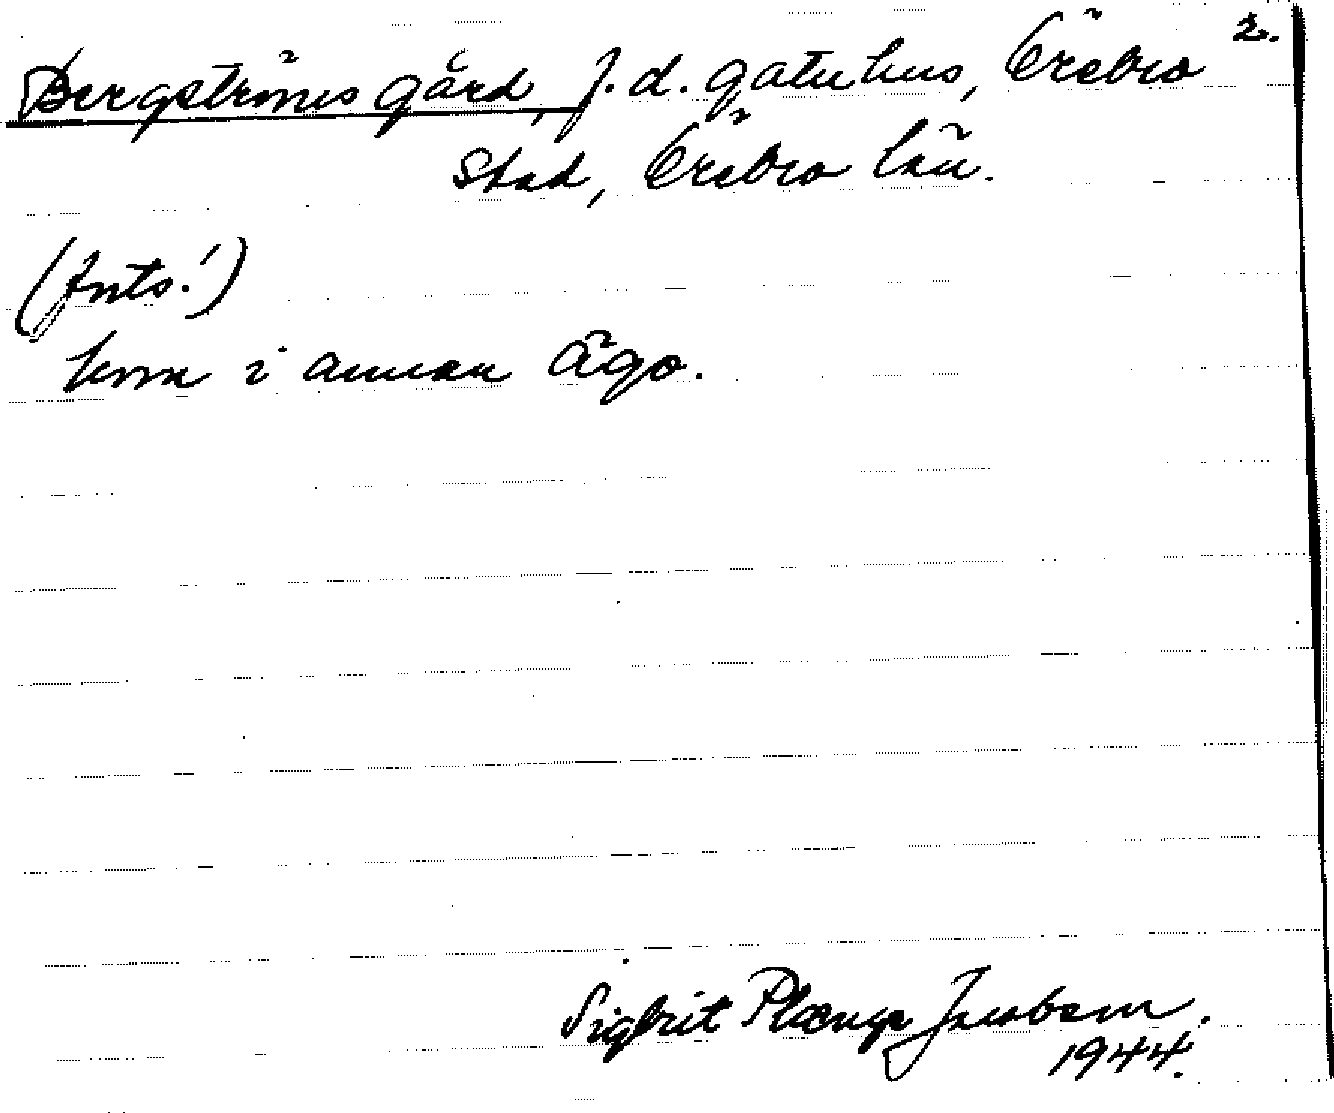 2.
Bergströms gård, f. d. gatuhus, Örebro
stad, Örebro län.
(forts.!)
kom i annan ägo.
Sigbrit Plænge Jacobson.
1944.